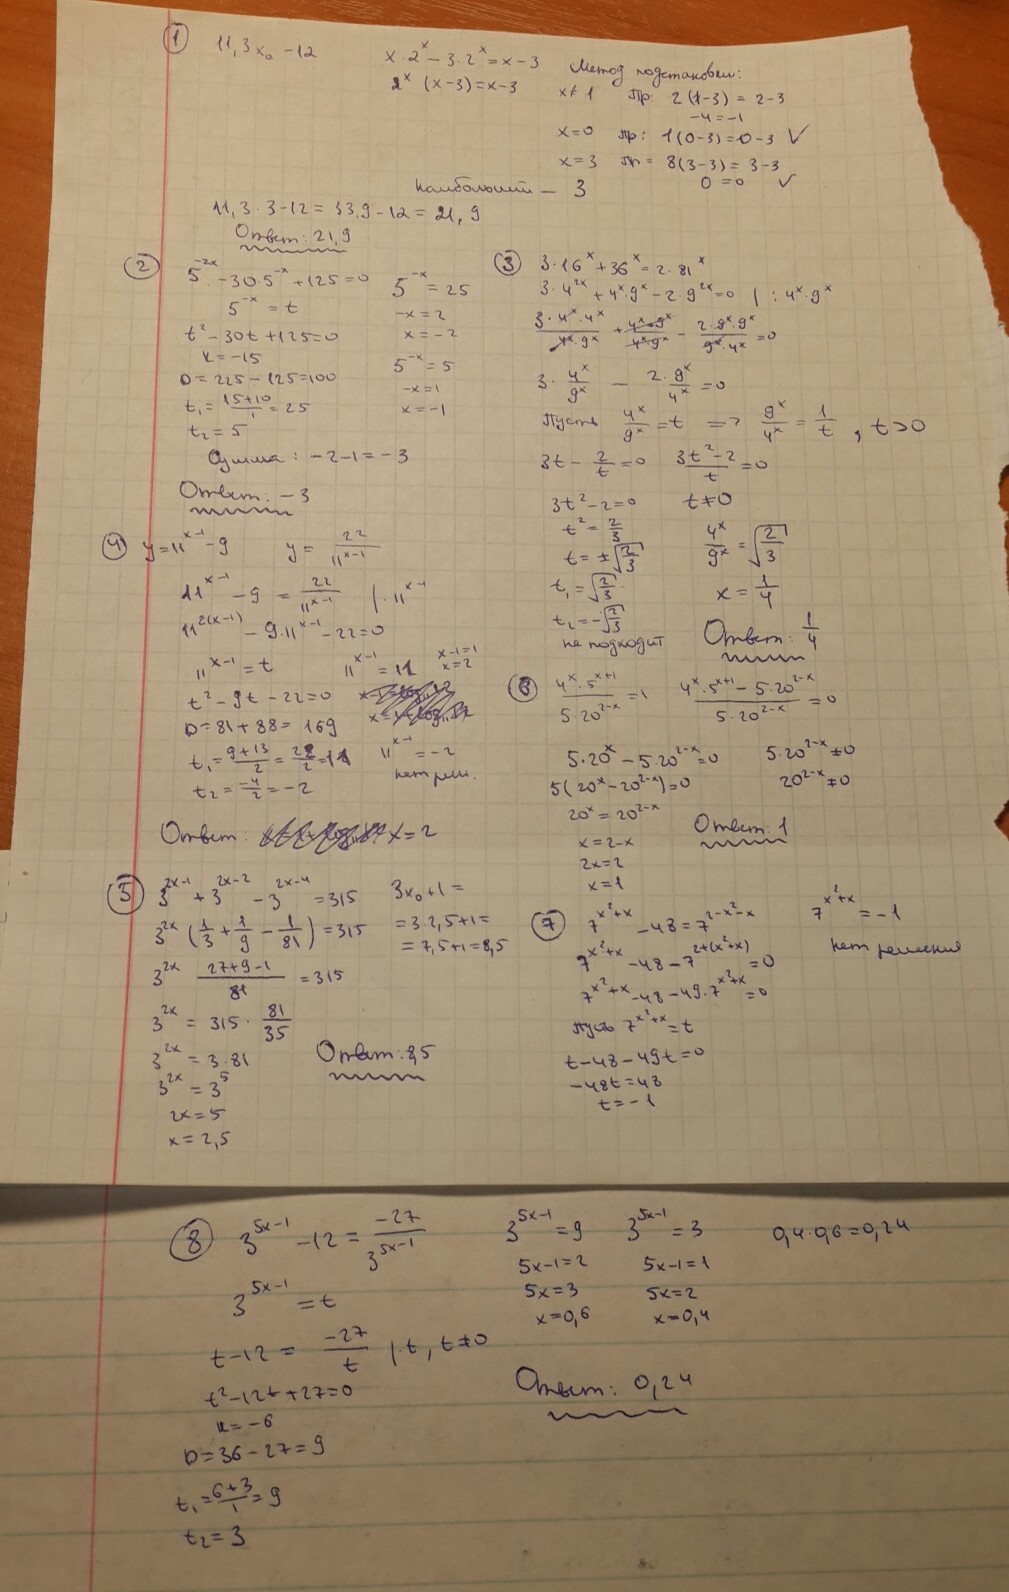 ① 11,3x₀ -12
x·2^x - 3·2^x = x-3
2^x (x-3) = x-3
Метод подстановки:
x≠1 Пр: 2(1-3) = 2-3
-4=-1
x=0 пр: 1(0-3)=0-3 ✓
x=3 Пр= 8(3-3)=3-3
0=0 ✓
Наибольший - 3
11,3·3-12 = 33,9-12 = 21,9
Ответ: 21,9
② 5^(-2x) -30·5^(-x) +125=0
5^(-x) = t
t²-30t+125=0
k=-15
D=225-125=100
t₁=(15+10)/1=25
t₂=5
5^(-x) = 25
-x=2
x=-2
5^(-x) = 5
-x=1
x=-1
Сумма: -2-1=-3
Ответ: -3
③ 3·16^x+36^x=2·81^x
3·4^(2x) + 4^x·9^x - 2·9^(2x)=0 | : 4^x·9^x
(3·4^x·4^x)/(4^x·9^x) + (4^x·9^x)/(4^x·9^x) - (2·9^x·9^x)/(9^x·4^x) =0
3·4^x/9^x - 2·9^x/4^x =0
Пусть 4^x/9^x =t => 9^x/4^x = 1/t , t>0
3t - 2/t =0 (3t²-2)/t =0
3t²-2=0 t≠0
t²=2/3
t=±√(2/3)
t₁=√(2/3)
t₂=-√(2/3)
не подходит
4^x/9^x = √(2/3)
x=1/4
Ответ: 1/4
④ y=11^(x-1)-9 y= 22/11^(x-1)
11^(x-1) -9 = 22/11^(x-1) |·11^(x-1)
11^(2(x-1)) - 9·11^(x-1) -22=0
11^(x-1) = t
t²-9t-22=0
D=81+88=169
t₁=(9+13)/2=22/2=11
t₂=-4/2=-2
11^(x-1) = 11
x-1=1
x=2
11^(x-1) =-2
нет реш.
Ответ: x=2
⑥ (4^x·5^(x+1))/(5·20^(2-x)) =1 (4^x·5^(x+1) - 5·20^(2-x))/(5·20^(2-x)) =0
5·20^x - 5·20^(2-x)=0 5·20^(2-x)≠0
5(20^x-20^(2-x))=0 20^(2-x)≠0
20^x=20^(2-x)
x=2-x
2x=2
x=1
Ответ: 1
⑤ 3^(2x-1) + 3^(2x-2) - 3^(2x-4) =315
3^(2x) (1/3+1/9-1/81) =315
3^(2x) (27+9-1)/81 =315
3^(2x) = 315·81/35
3^(2x) = 3·81
3^(2x) = 3^5
2x=5
x=2,5
3x₀+1=
=3·2,5+1=
=7,5+1=8,5
Ответ: 8,5
⑦ 7^(x²+x) -48=7^(2-x²-x)
7^(x²+x) -48-7^(2+(x²+x)) =0
7^(x²+x) -48-49·7^(x²+x)=0
Пусть 7^(x²+x)=t
t-48-49t=0
-48t=48
t=-1
7^(x²+x) =-1
нет решения
⑧ 3^(5x-1) -12 = -27/3^(5x-1)
3^(5x-1) = t
t-12 = -27/t |·t, t≠0
t²-12t+27=0
k=-6
D=36-27=9
t₁=(6+3)/1=9
t₂=3
3^(5x-1)=9
5x-1=2
5x=3
x=0,6
3^(5x-1)=3
5x-1=1
5x=2
x=0,4
0,4·0,6=0,24
Ответ: 0,24